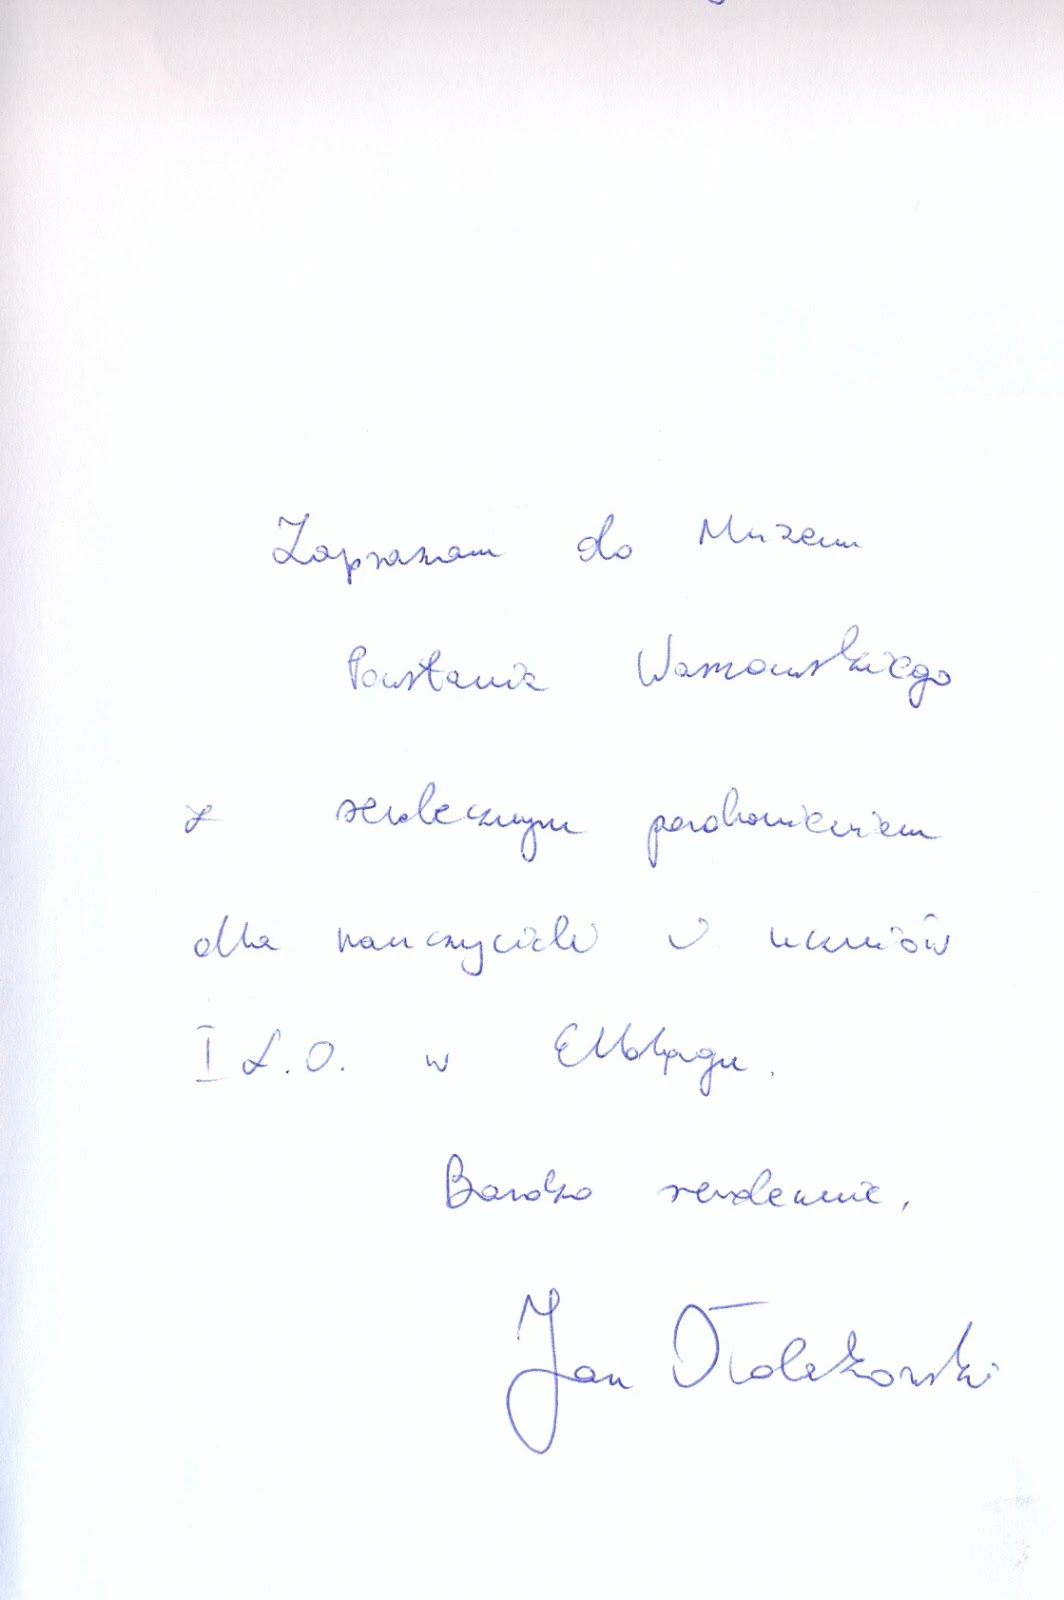 Zapraszam do Muzeum
Powstania Warszawskiego
z serdecznym pozdrowieniem
dla nauczycieli i uczniów
I L.O. w Elblągu.
Bardzo serdecznie,
Jan Ołdakowski